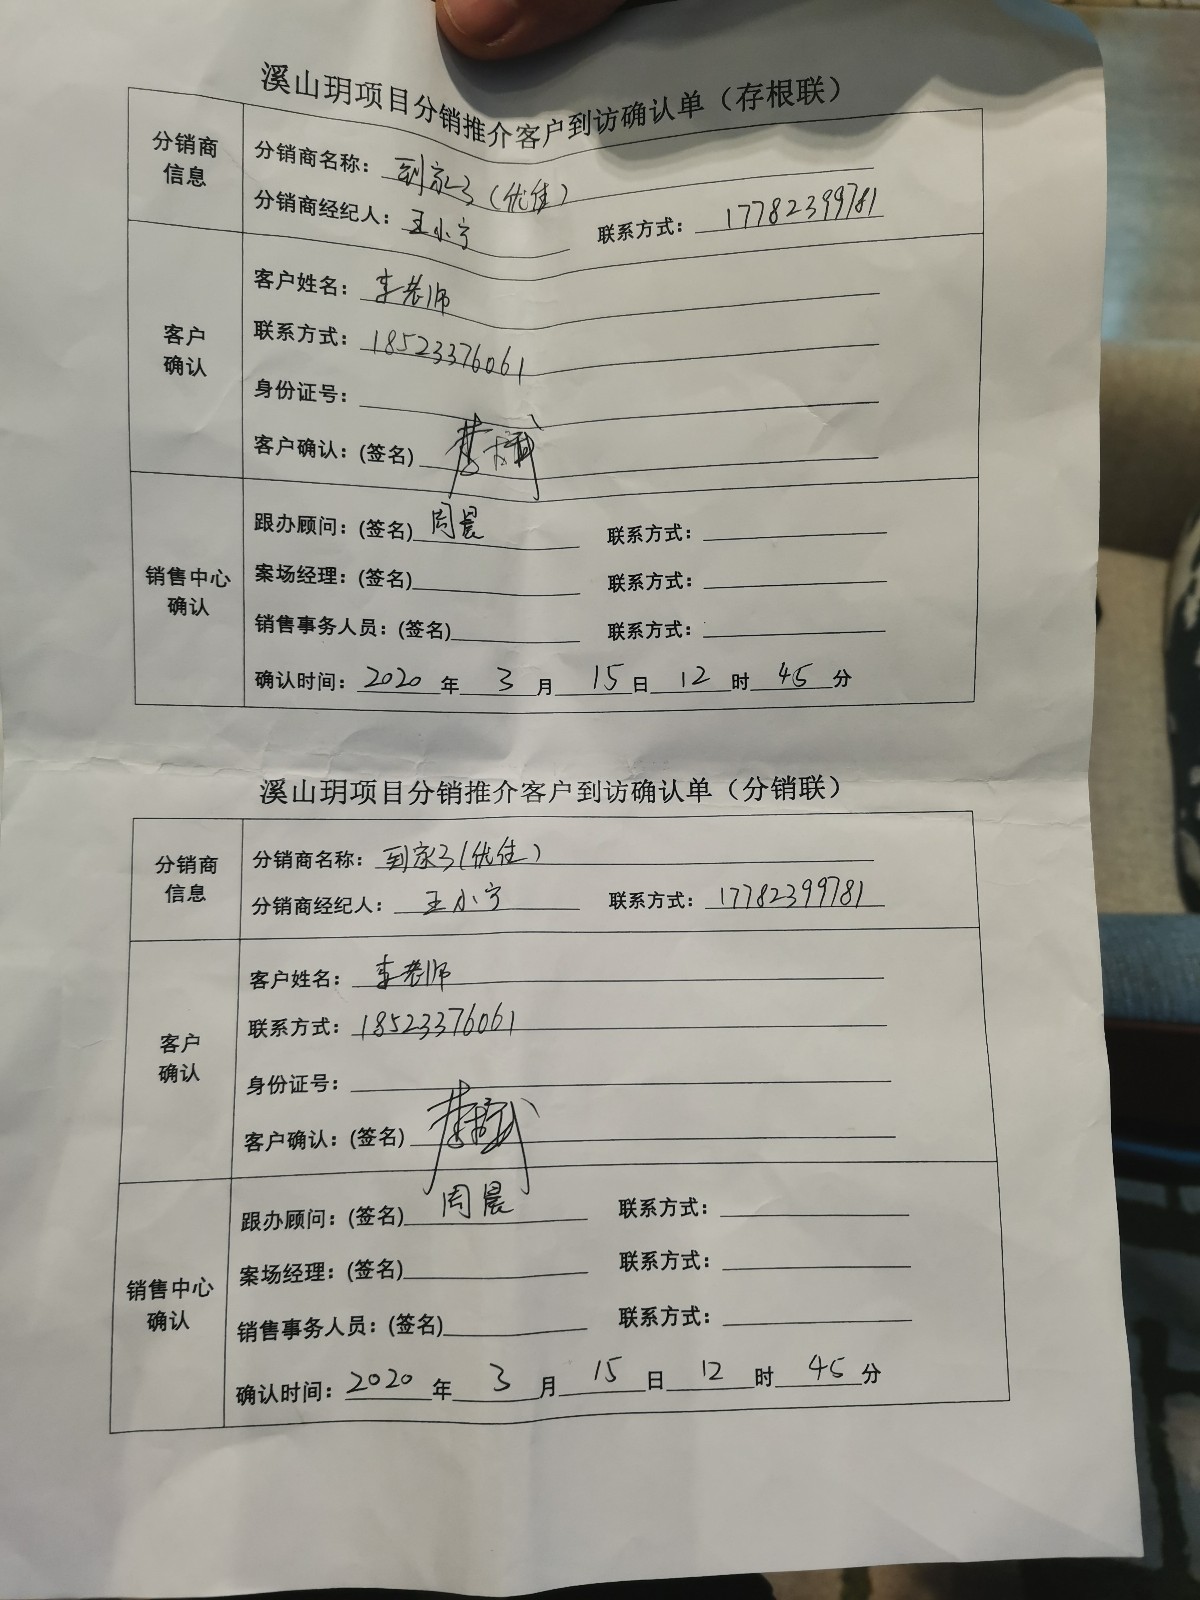 溪山玥项目分销推介客户到访确认单（存根联）
分销商信息
分销商名称：到家了（优佳）
分销商经纪人：王小宁 联系方式：17782399781
客户确认
客户姓名：李老师
联系方式：18523376061
身份证号：
客户确认：(签名)
销售中心确认
跟办顾问：(签名) 周晨 联系方式：
案场经理：(签名) 联系方式：
销售事务人员：(签名) 联系方式：
确认时间：2020年3月15日12时45分
溪山玥项目分销推介客户到访确认单（分销联）
分销商信息
分销商名称：到家了（优佳）
分销商经纪人：王小宁 联系方式：17782399781
客户确认
客户姓名：李老师
联系方式：18523376061
身份证号：
客户确认：(签名)
销售中心确认
跟办顾问：(签名) 周晨 联系方式：
案场经理：(签名) 联系方式：
销售事务人员：(签名) 联系方式：
确认时间：2020年3月15日12时45分